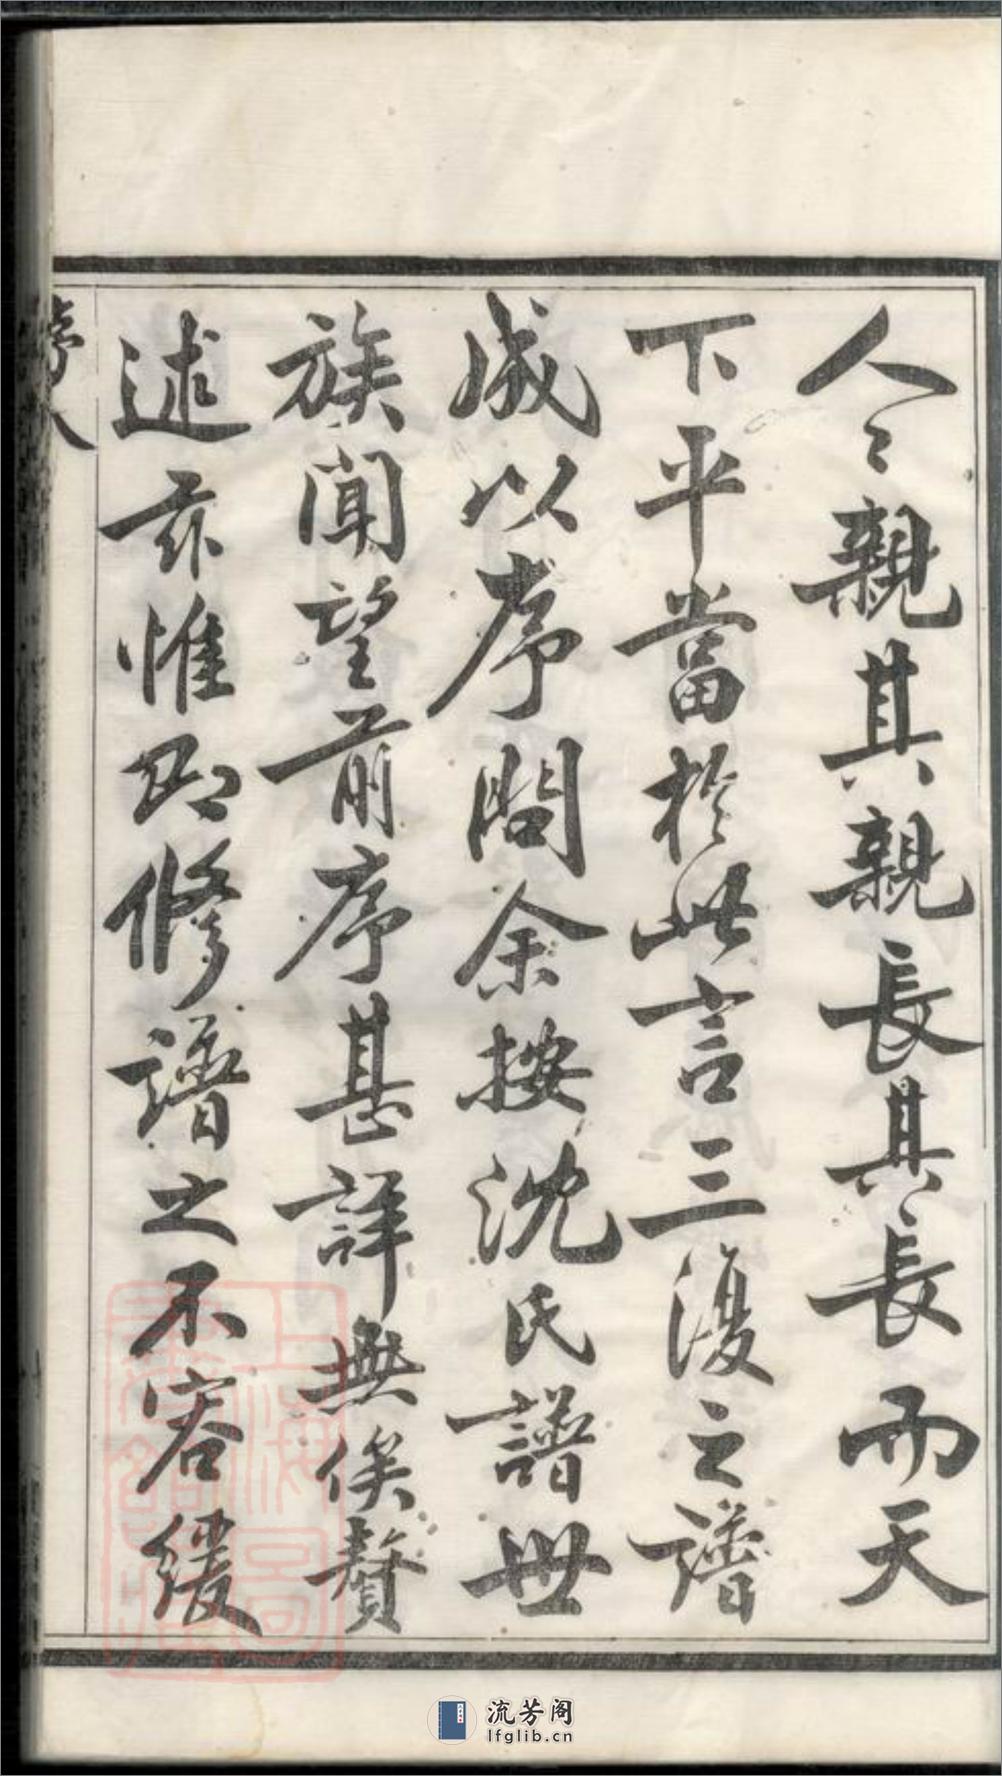 人〻親其親長其長而天
下平當於此言三復之譜
成以序問余按沈氏譜世
族聞望前序甚詳無俟贅
述茲惟即修譜之不容緩
上海圖書館藏
流芳阁
lfglib.cn